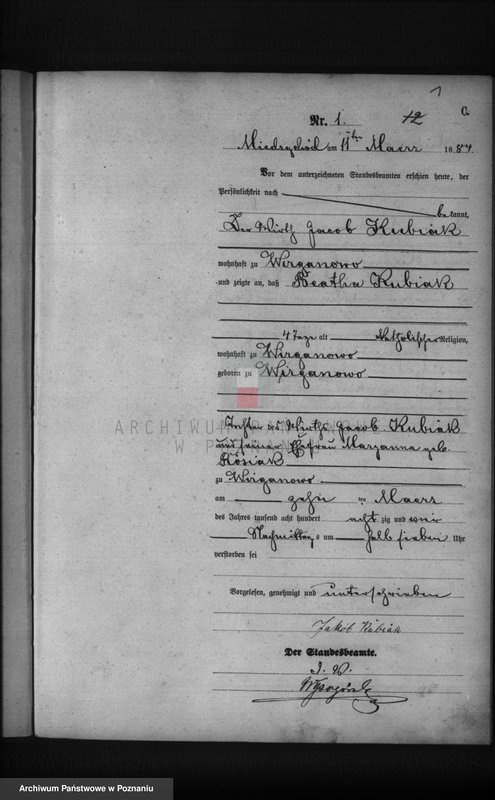 1
C.
Nr. 1. 12
Miedzychod am 11ten Maerz 1884.
Vor dem unterzeichneten Standesbeamten erschien heute, der
Persönlichkeit nach
bekannt,
Der Wirth Jacob Kubiak
wohnhaft zu Wirganowo
und zeigte an, daß Beatha Kubiak
4 Tage alt katholischer Religion,
wohnhaft zu Wirganowo
geboren zu Wirganowo
Tochter des Wirths Jacob Kubiak
und seiner Ehefrau Maryanna geb.
Rosiak
ARCHIWUM
W P
zu Wirganowo
am zehn ten Maerz
des Jahres tausend acht hundert acht zig und
Nachmittags um halb sieben Uhr
verstorben sei
Vorgelesen, genehmigt und unterschrieben
Jakob Kubiak
Der Standesbeamte.
Archiwum Państwowe w Poznaniu Archiwum Państwowe w Poznaniu